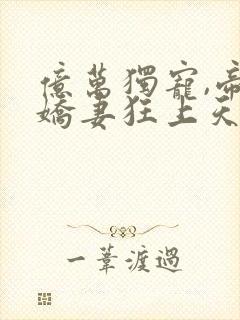 億萬獨寵,帝
嬌妻狂上天
一葦渡過